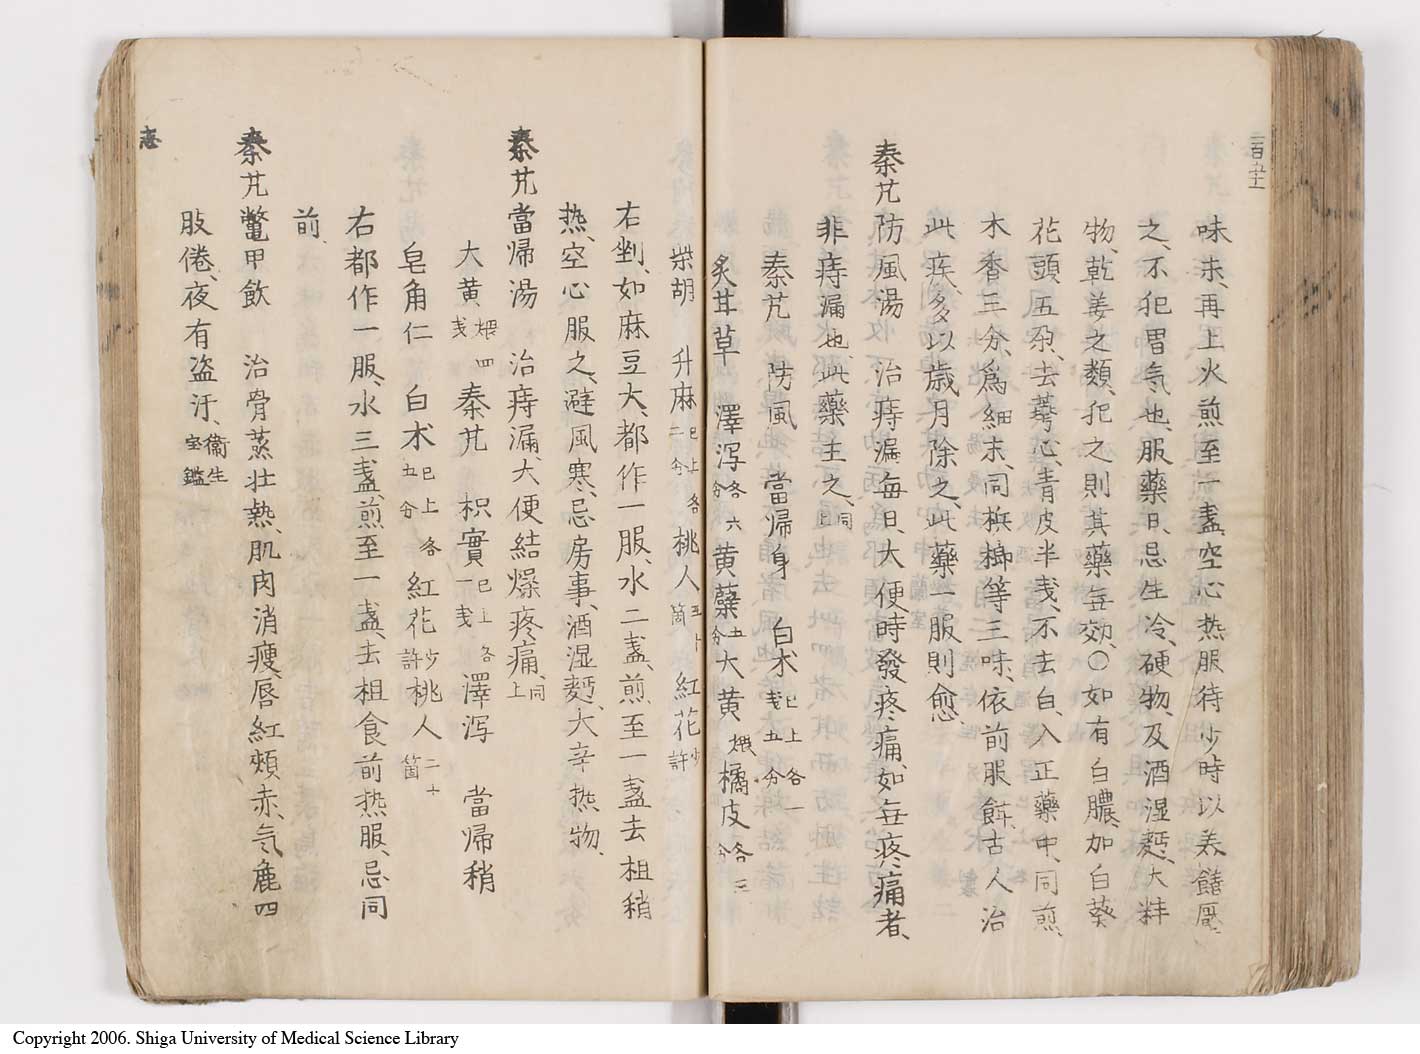 百
味末、再上火煎至一盞、空心热服待少時以美饍壓
之、不犯胃气也、服藥日忌性冷、硬物、及酒湿麪、大料
物、乾姜之類、犯之則其藥無効、〇如有白膿、加白葵
花頭五朶、去萼心、青皮半戔、不去白、入正藥中、同煎、
木香三分、爲細末、同梹榔等三味、依前服餌、古人治
此疾、多以歳月除之、此藥一服則愈、
秦艽防風湯 治痔漏、毎日、大便時發疼痛、如無疼痛者、
非痔漏也、此藥主之、同上
秦艽 防風 當帰身 白术已上各一戔五分
炙甘草 澤泻各六分 黄蘗五分 大黄煨 橘皮各三分
柴胡 升麻已上各二分 桃人五十箇 紅花少許
右剉、如麻豆大、都作一服、水二盞、煎至一盞去柤稍
热、空心服之、避風寒、忌房事、酒湿麪、大辛热物、
秦艽當帰湯 治痔漏、大便結燥疼痛、同上
大黄煨四戔 秦艽 枳實已上各一戔 澤泻 當帰稍
皂角仁 白术已上各五分 紅花少許 桃人二十箇
右都作一服、水三盞、煎至一盞、去柤食前热服、忌同
前、
秦艽鼈甲飲 治骨蒸壮熱、肌肉消瘦、唇紅頰赤、气麁四
肢倦、夜有盗汗、衞生宝鑑
志
Copyright 2006. Shiga University of Medical Science Library